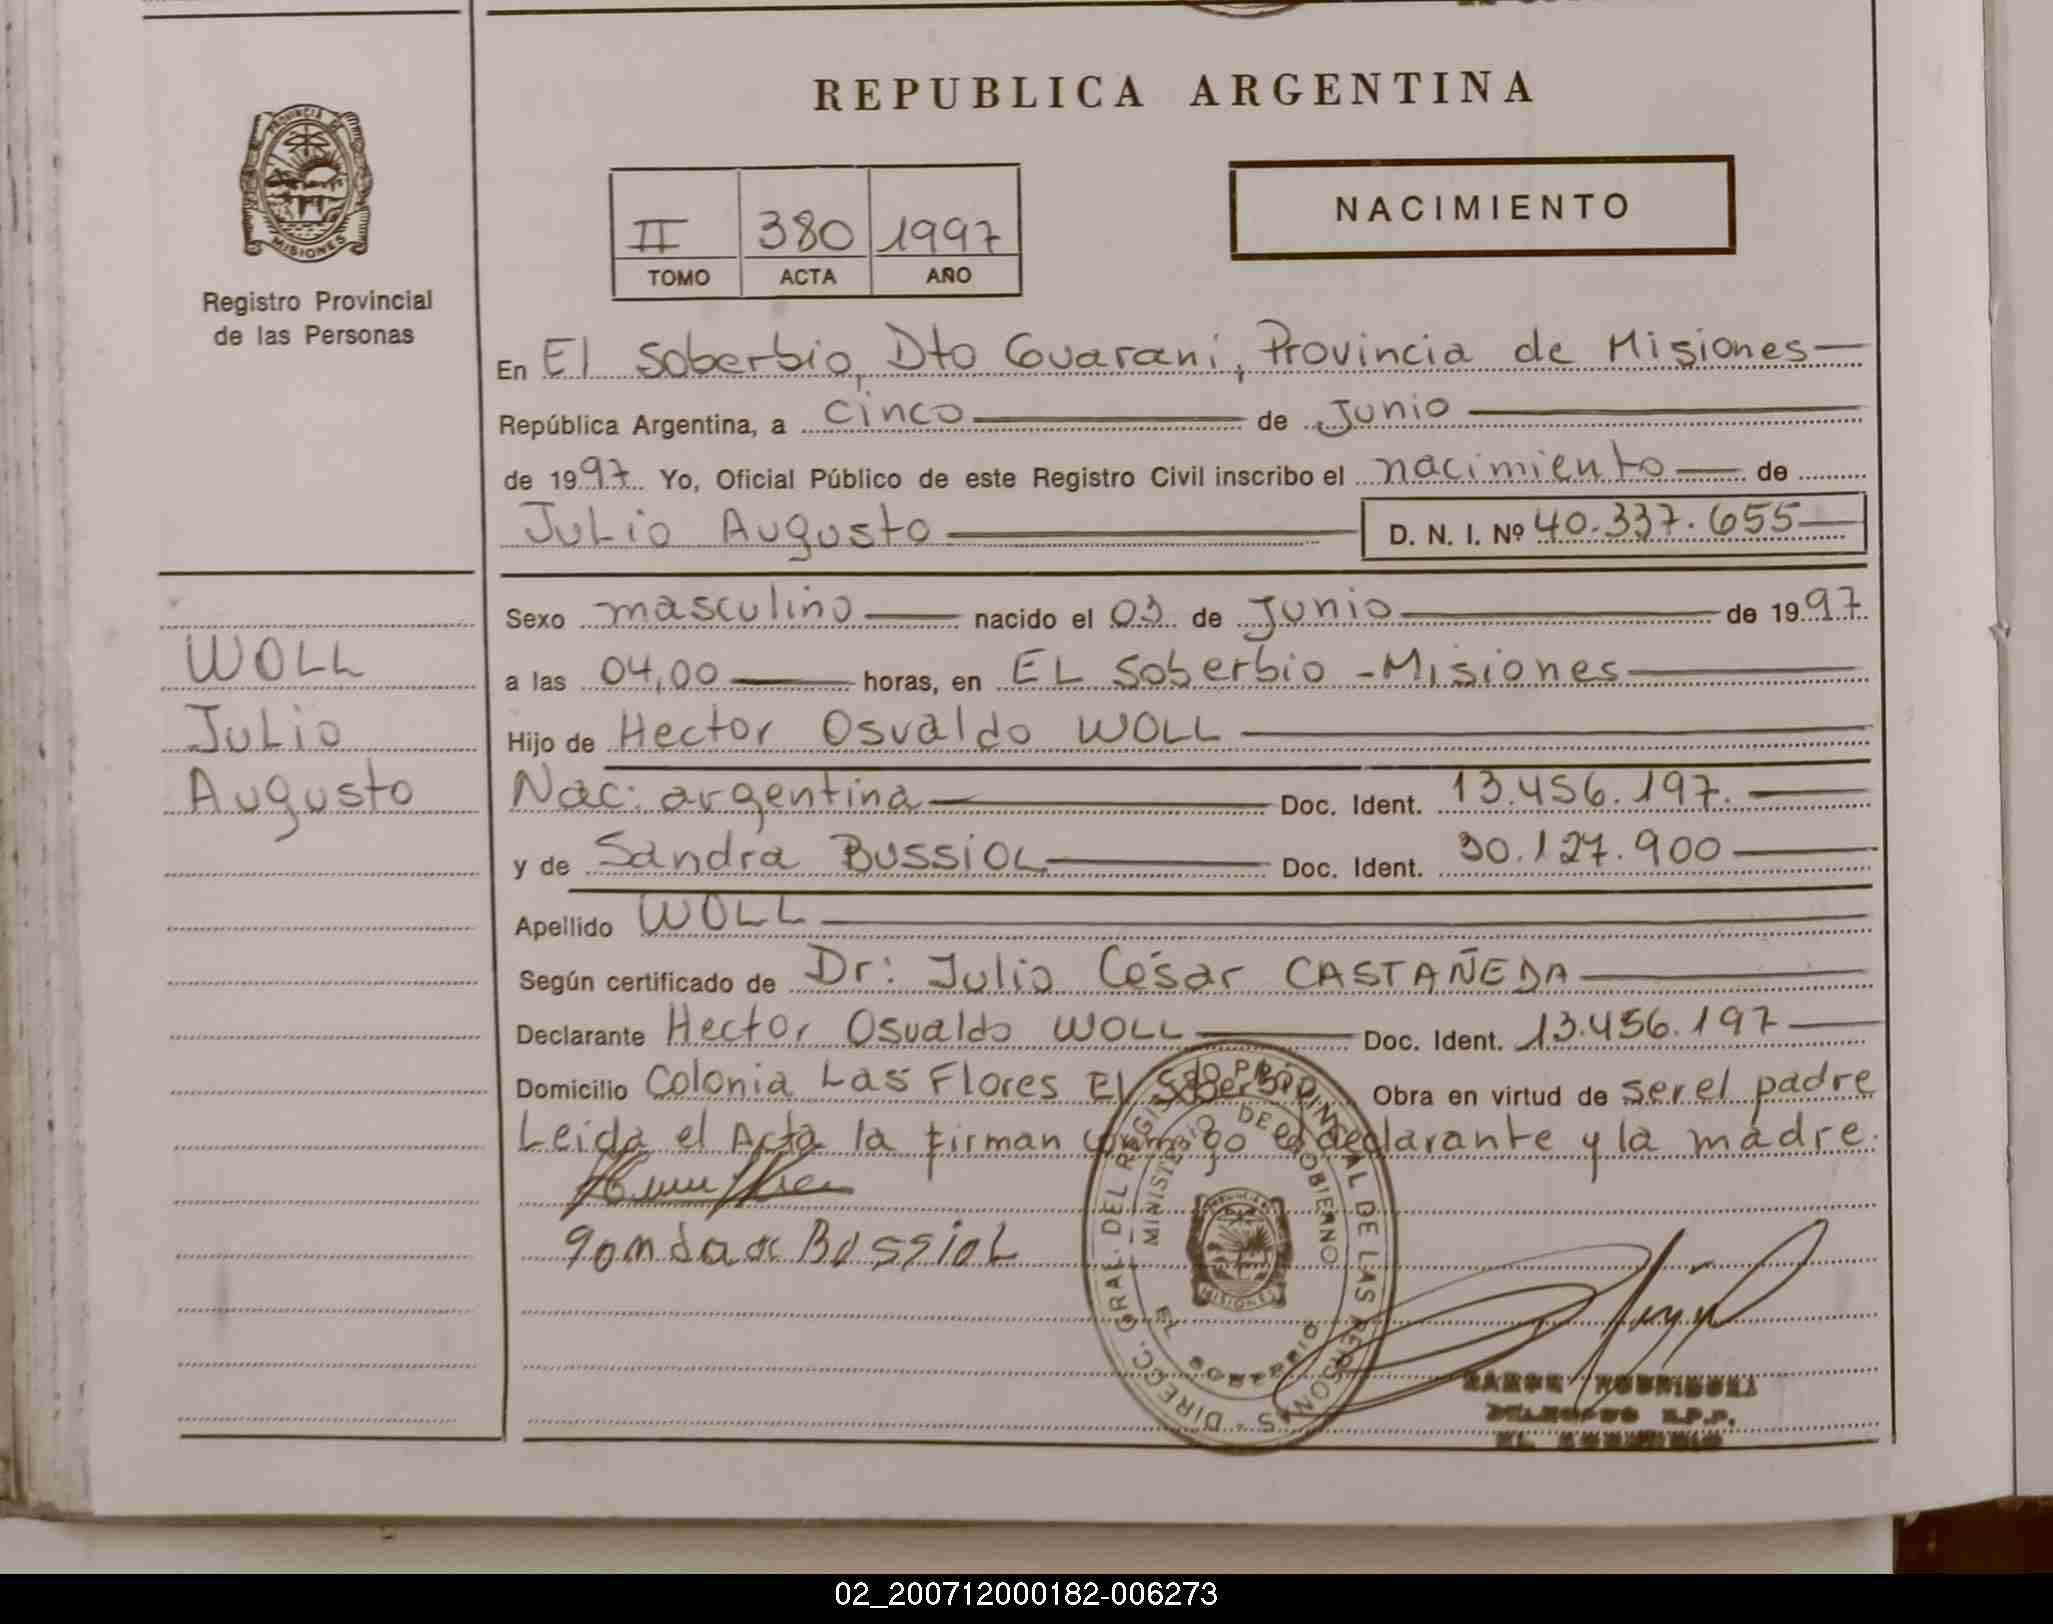 REPUBLICA ARGENTINA
PROVINCIA DE
MISIONES
Registro Provincial
de las Personas
II 380 1997
TOMO ACTA AÑO
NACIMIENTO
En El Soberbio, Dto Guarani, Provincia de Misiones
República Argentina, a cinco de Junio
de 1997. Yo, Oficial Público de este Registro Civil inscribo el nacimiento de
Julio Augusto D. N. I. Nº 40.337.655
Sexo masculino nacido el 03 de Junio de 1997.
a las 04,00 horas, en EL Soberbio - Misiones
Hijo de Hector Osvaldo WOLL
Nac: argentina Doc. Ident. 13.456.197.
y de Sandra BUSSIOL Doc. Ident. 30.127.900
Apellido WOLL
Según certificado de Dr: Julio César CASTAÑEDA
Declarante Hector Osvaldo WOLL Doc. Ident. 13.456.197
Domicilio Colonia Las Flores El Soberbio Obra en virtud de ser el padre
Leida el Acta la firman conmigo el declarante y la madre.
WOLL
Julio
Augusto
BUSSIOL
DIRECC. GRAL. DEL REGISTRO PROVINCIAL DE LAS PERSONAS -
MINISTERIO DE GOBIERNO
EL SOBERBIO
MISIONES
RODRIGUEZ
R.P.P.
EL SOBERBIO
02_200712000182-006273